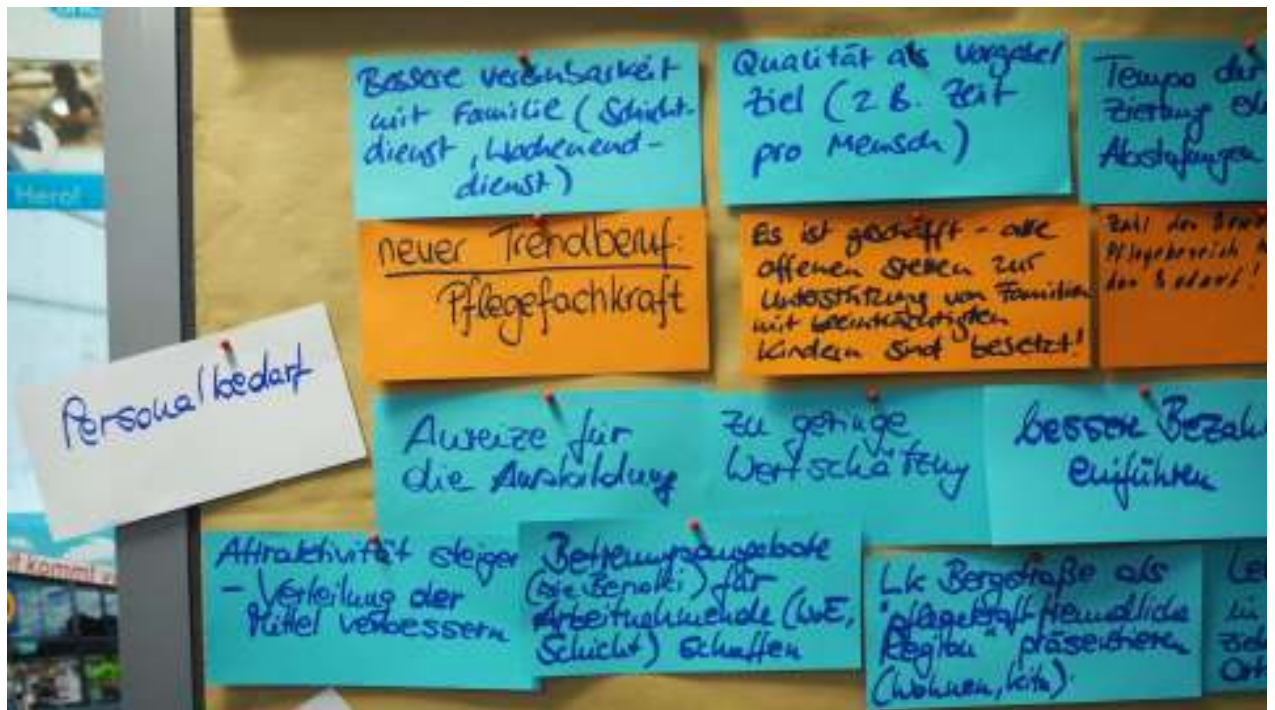 Hero!
Bessere Vereinbarkeit
mit Familie (Schicht-
dienst, Wochenend-
dienst)
Qualität als Vorgabe/
Ziel (z B. Zeit
pro Mensch)
Tempo der
Abstufungen
neuer Trendberuf:
Pflegefachkraft
Es ist geschafft - alle
offenen Stellen zur
Unterstützung von Familien
mit beeinträchtigten
Kindern sind besetzt!
Zahl der
Pflegebereich
den Bedarf!
Personalbedarf
Anreize für
die Ausbildung
Zu geringe
Wertschätzung
bessere Bezahl
einführen
Attraktivität steiger
- Verteilung der
Mittel verbessern
Betreuungsangebote
(wie Benoki) für
Arbeitnehmende (WoE,
Schicht) schaffen
Lk Bergstraße als
"pflegekraftfreundliche
Region" präsentieren
(Wohnen, Kita)
kommt